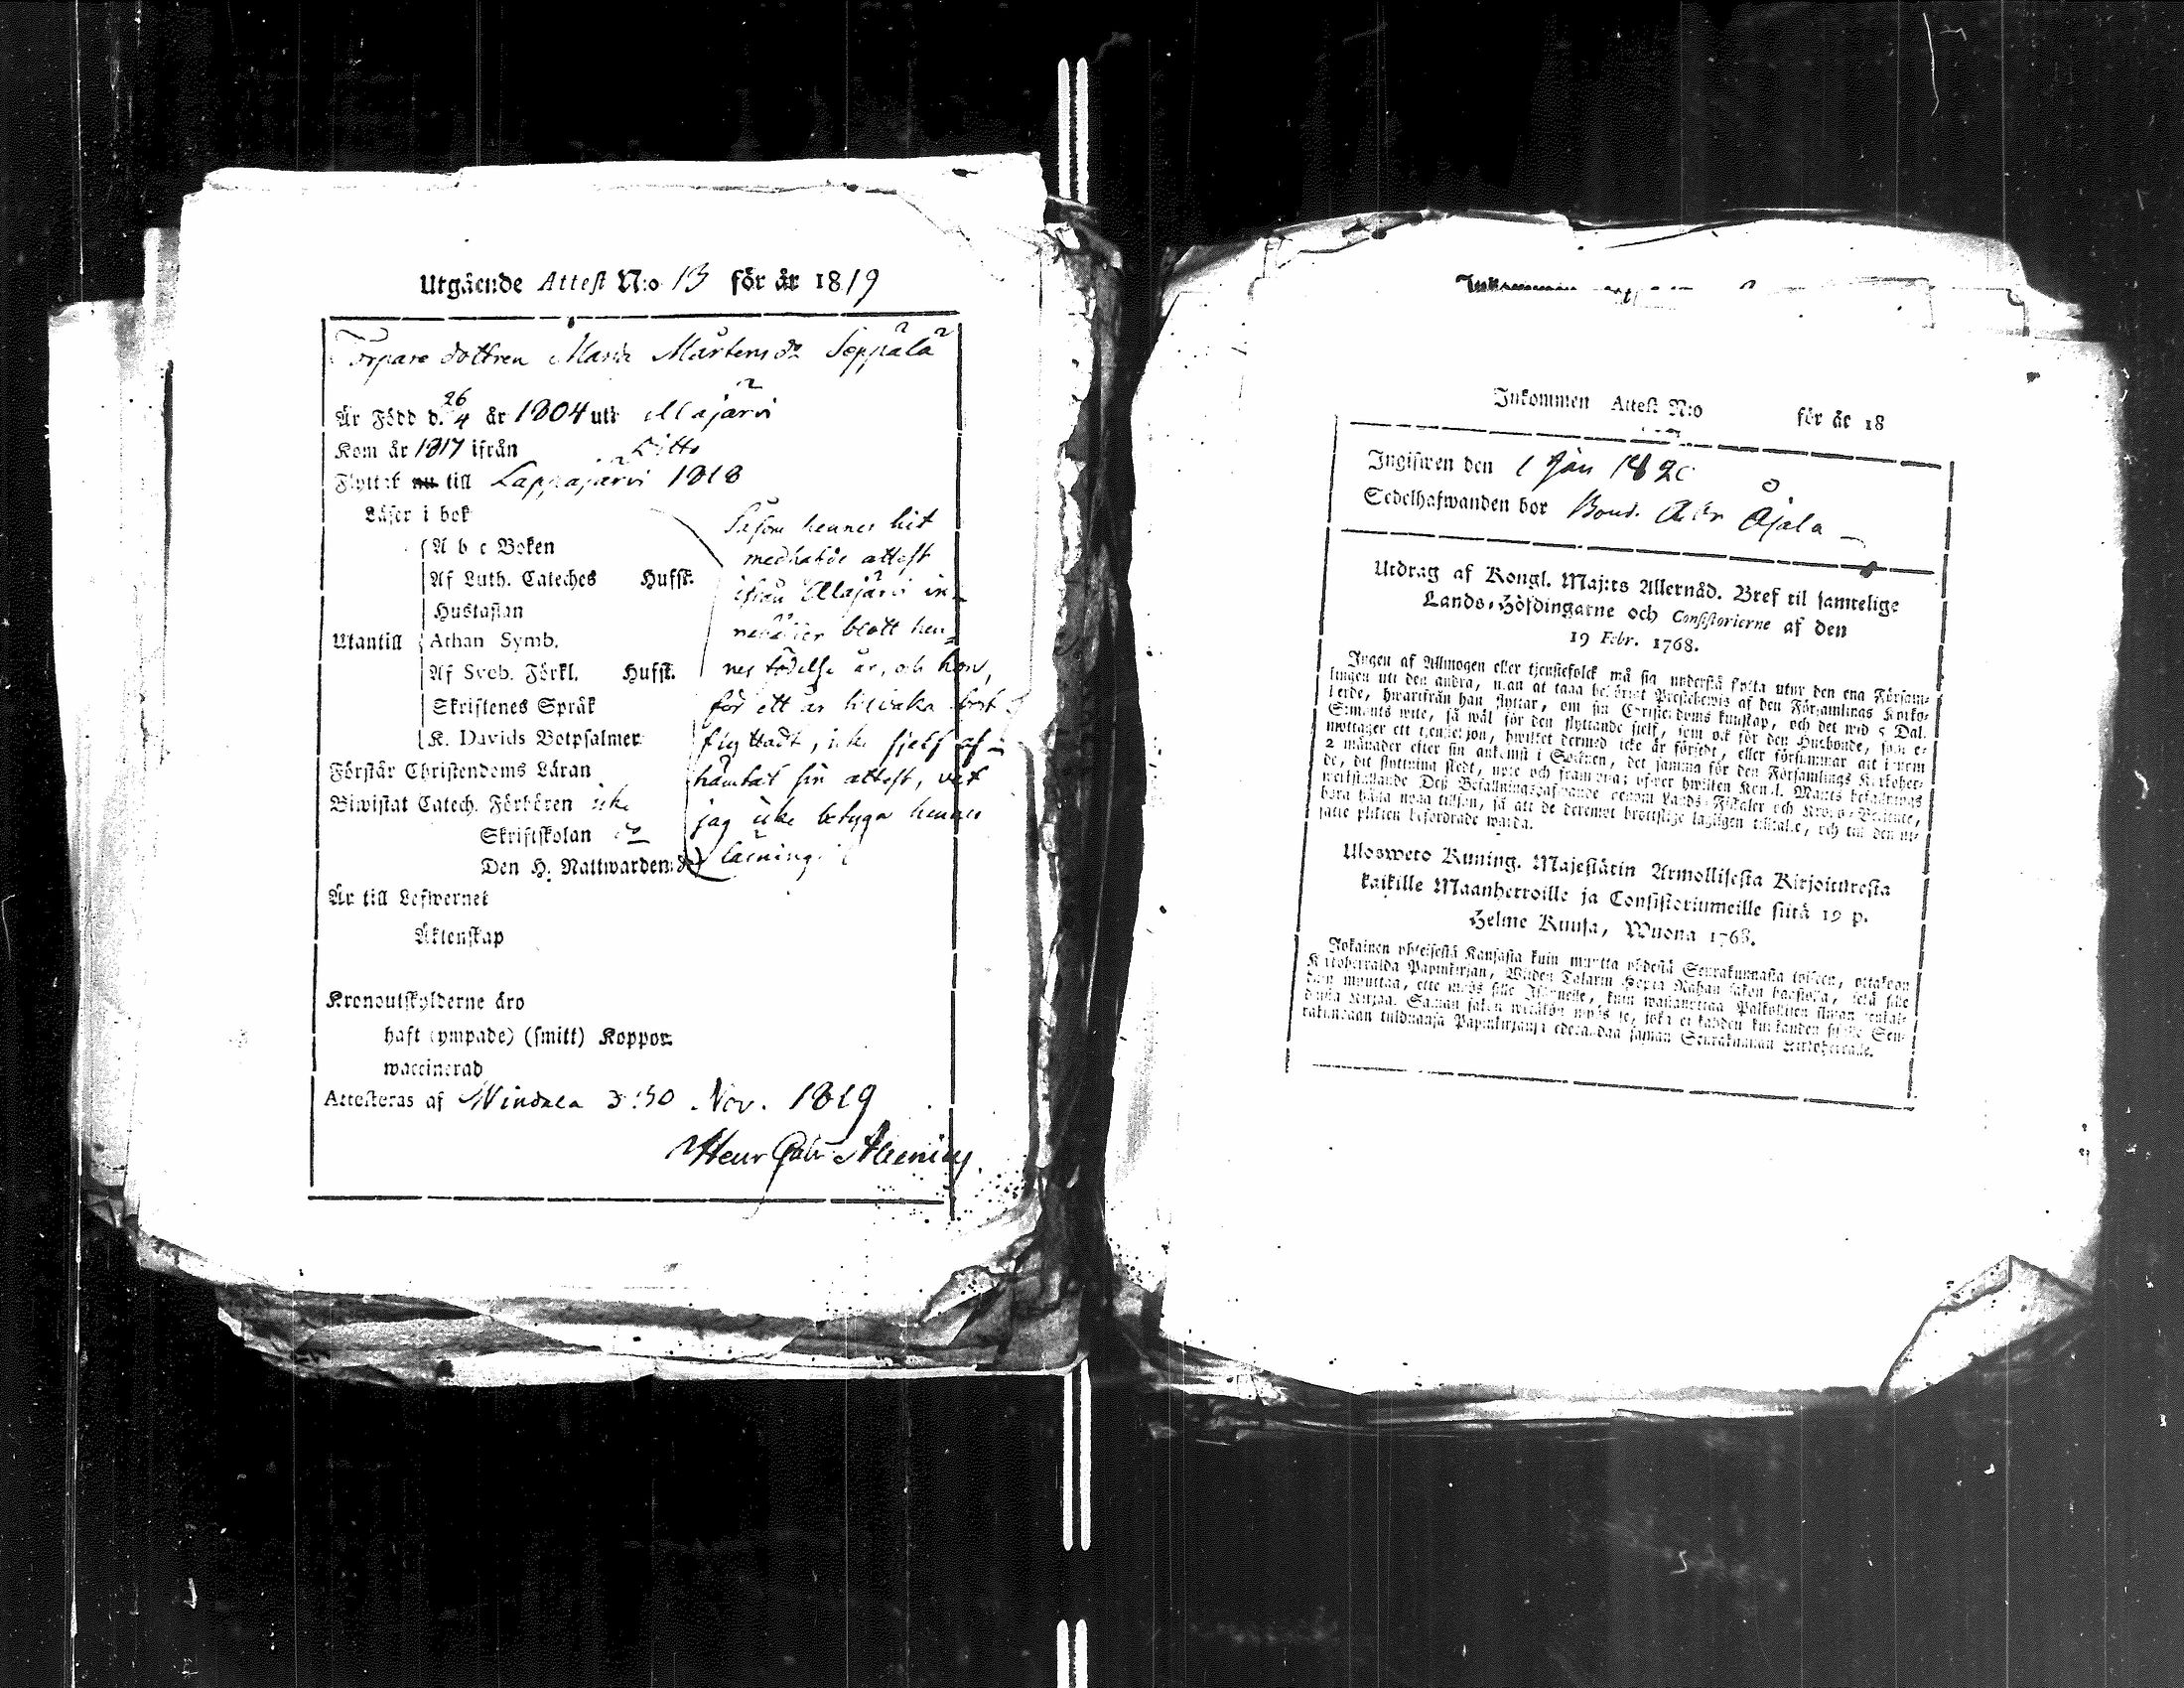 Utgående Attest N:o 13 för år 1819
Torpare dottren Maria Mårtensdr Seppälä
26
Är Född d. 4 år 1804 uti Alajärvi
Kom år 1817 ifrån Ditto
Flyttat nu till Lappajärvi 1818
Läser i bok
A b c Boken
Af Luth. Cateches Hufst.
Hustaflan
Utantill Athan Symb.
Af Sveb. Förkl. Hufst.
Skriftenes Språk
K. Davids Botpsalmer
Såsom hennes hit
medhafde attest
ifrån Alajärvi in-
nehåller blott hen-
nes födelse år, och hon,
för ett år tilbaka bort
flyttadt, icke sjelf af-
hämtat sin attest, vet
jag icke betyga hennes
läsning.
Förstår Christendoms Läran
Biwistat Catech. Förhören icke
Skriftskolan do
Den H. Nattwarden: do
Är till Lefwernet
Äktenskap
Kronoutskylderne äro
haft (ympade) (smitt) Koppor
waccinerad
Attesteras af Windala d: 30 Nov. 1819
Henr Gabr
Inkommen Attest N:o för år 18
Ingifwen den 1 Jan 1820
Sedelhafwanden bor Bond. Åjala
Utdrag af Kongl. Maj:ts Allernåd. Bref til samtelige
Lands-Höfdingarne och Consistorierne af den
19 Febr. 1768.
Ingen af Allmogen eller tjenstefolck må sig understå flytta utur den ena Försam-
lingen uti den andra, utan at taga behörigt Prestebewis af den Församlings Kyrko-
herde, hwarifrån han flyttar, om sin Christendoms kunskap, och det wid 5 Dal.
S:mynts wite, så wäl för den flyttande sjelf, som ock för den Husbonde, som e-
mottager ett tjenstehjon, hwilket dermed icke är försedt, eller försummar att inom
2 månader efter sin ankomst i Socknen, det samma för den Församlings Kyrkoher-
de, dit flyttning skedt, upte och framwisa; öfwer hwilken Kongl. Maj:ts befallnings
werkställande Deß Befallningshafwande genom Lands-Fiskaler och Krono-Betiente,
böra hålla noga tillsyn, så att de deremot brottslige lagligen tilltalte, och til den ut-
satte plikten befordrade warda.
Uloswetö Kuning. Majestätin Armollisesta Kirjoituresta
kaikille Maanherroille ja Consistoriumeille siitä 19 p.
Helme Kuusa, Wuona 1768.